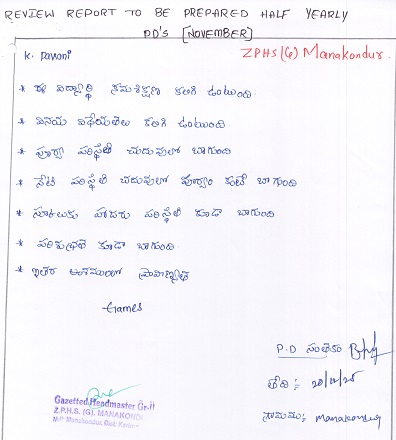 REVIEW REPORT TO BE PREPARED HALF YEARLY
DD's [NOVEMBER]
K. Pavani
ZPHS (G) Manakondur.
* ఈ విద్యార్థి క్రమశిక్షణ కలిగి ఉంటుంది.
* వినయ విధేయతలు కలిగి ఉంటుంది.
* పూర్వ పరిస్థితి చదువులో బాగుంది
* నేటి పరిస్థితి చదువులో పూర్వం కంటే బాగుంది
* స్కూలుకు హాజరు పరిస్థితి కూడా బాగుంది
* పరిశుభ్రత కూడా బాగుంది.
* ఇతర అంశములలో ప్రావీణ్యత
Games
P.D సంతకం
తేది :-
గ్రామము: Manakondur
Gazetted Headmaster Gr.II
Z.P.H.S. (G). MANAKONDUR